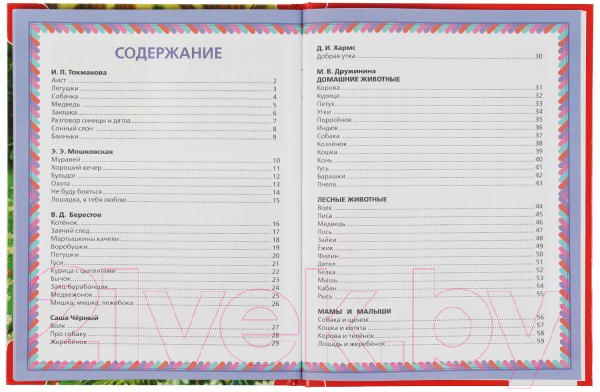 СОДЕРЖАНИЕ
И. П. Токмакова
Аист 2
Лягушки 3
Собачка 4
Медведь 5
Заюшка 6
Разговор синицы и дятла 7
Сонный слон 8
Баиньки 9
Э. Э. Мошковская
Муравей 10
Хороший вечер 11
Бульдог 12
Охота 13
Не буду бояться 14
Лошадка, я тебя люблю 15
В. Д. Берестов
Котёнок 16
Заячий след 17
Мартышкины качели 18
Воробушки 19
Петушки 20
Гуси 21
Курица с цыплятами 22
Бычок 23
Заяц-барабанщик 24
Медвежонок 25
Мишка, мишка, лежебока 26
Саша Чёрный
Волк 27
Про собаку 28
Жеребёнок 29
Д. И. Хармс
Добрая утка 30
М. В. Дружинина
ДОМАШНИЕ ЖИВОТНЫЕ
Корова 31
Курица 32
Петух 33
Утки 34
Поросёнок 35
Индюк 36
Собака 37
Козлёнок 38
Кошка 39
Конь 40
Гусь 41
Барашки 42
Пчела 43
ЛЕСНЫЕ ЖИВОТНЫЕ
Волк 44
Лиса 45
Медведь 46
Лось 47
Зайки 48
Ёжик 49
Филин 50
Дятел 51
Белка 52
Мышь 53
Кабан 54
Рысь 55
МАМЫ И МАЛЫШИ
Собака и щенок 56
Кошка и котята 57
Корова и телёнок 58
Лошадь и жеребёнок 59
21vek.by